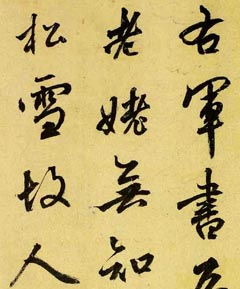 右軍書
老姥無知
松雪故人